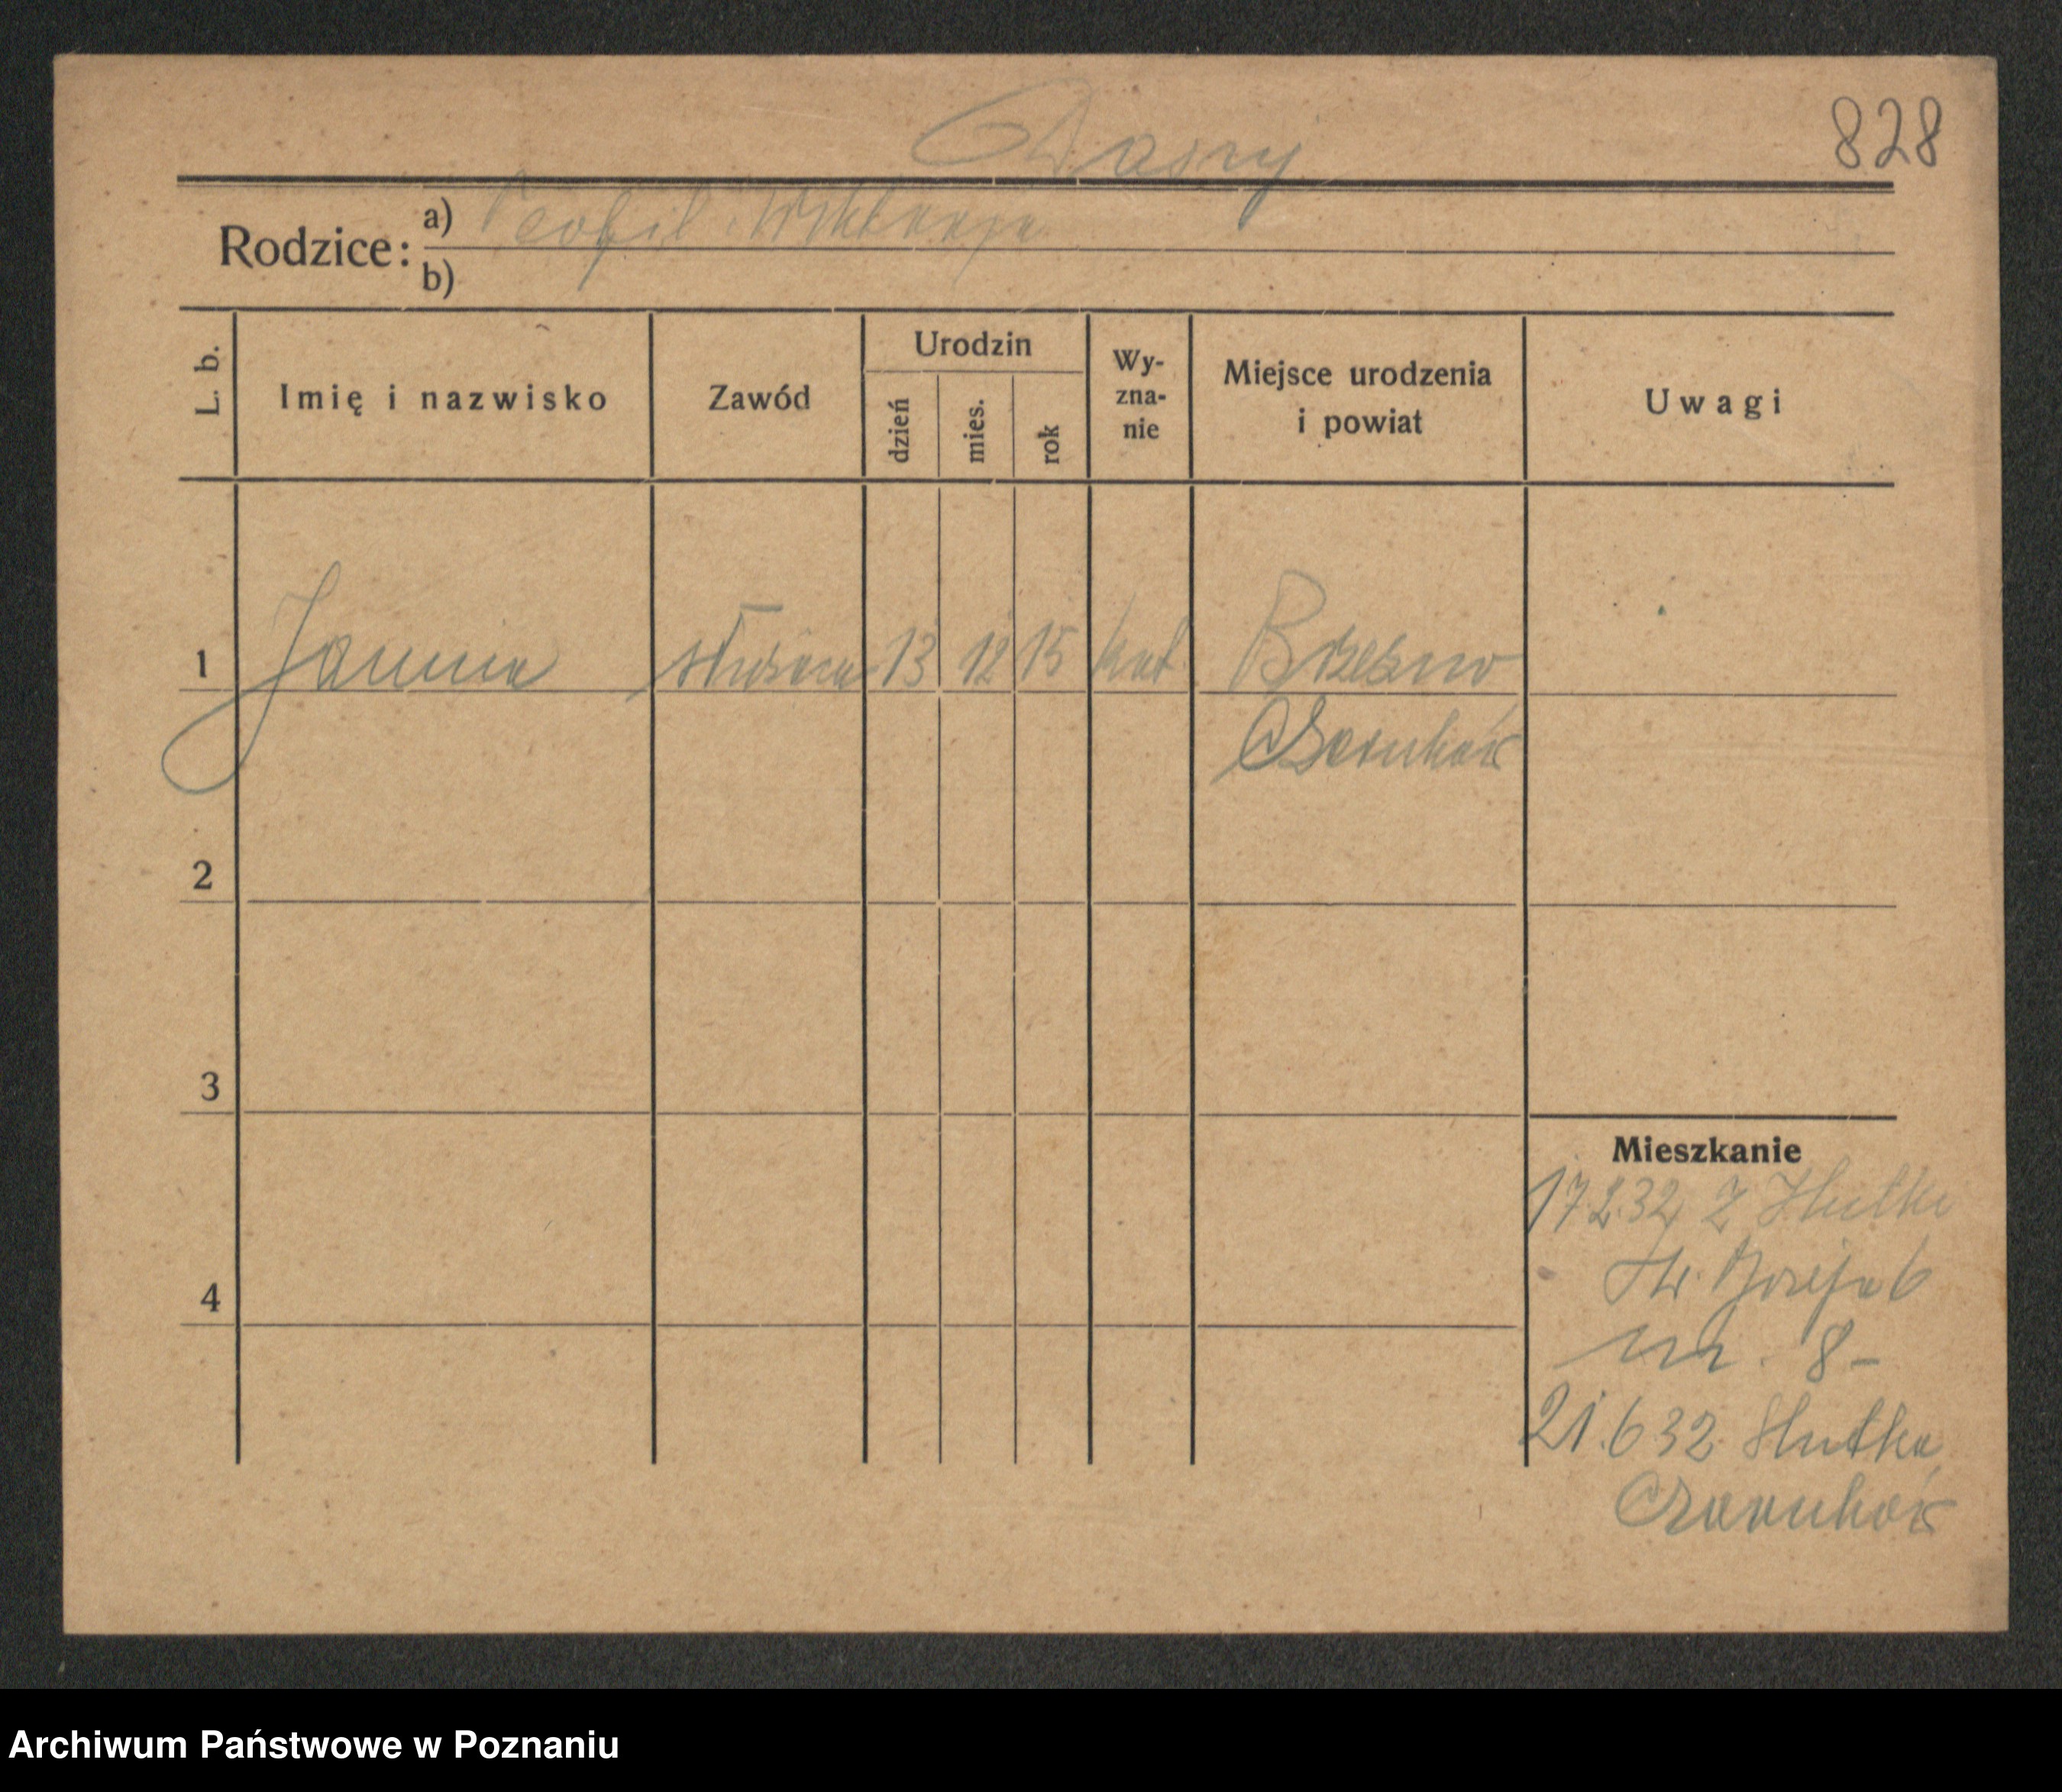 828
Rodzice: a) Teofil i Wiktorja
b)
L. b.
Imię i nazwisko
Zawód
Urodzin
dzień
mies.
rok
Wy-
zna-
nie
Miejsce urodzenia
i powiat
Uwagi
1 Janina służąca 13 12 15 kat. Brzeźno
Czarnków
2
3
4
Mieszkanie
17.2.32 z Hutki
nr. 8-
21.6 32 Hutka
Czarnków
Archiwum Państwowe w Poznaniu